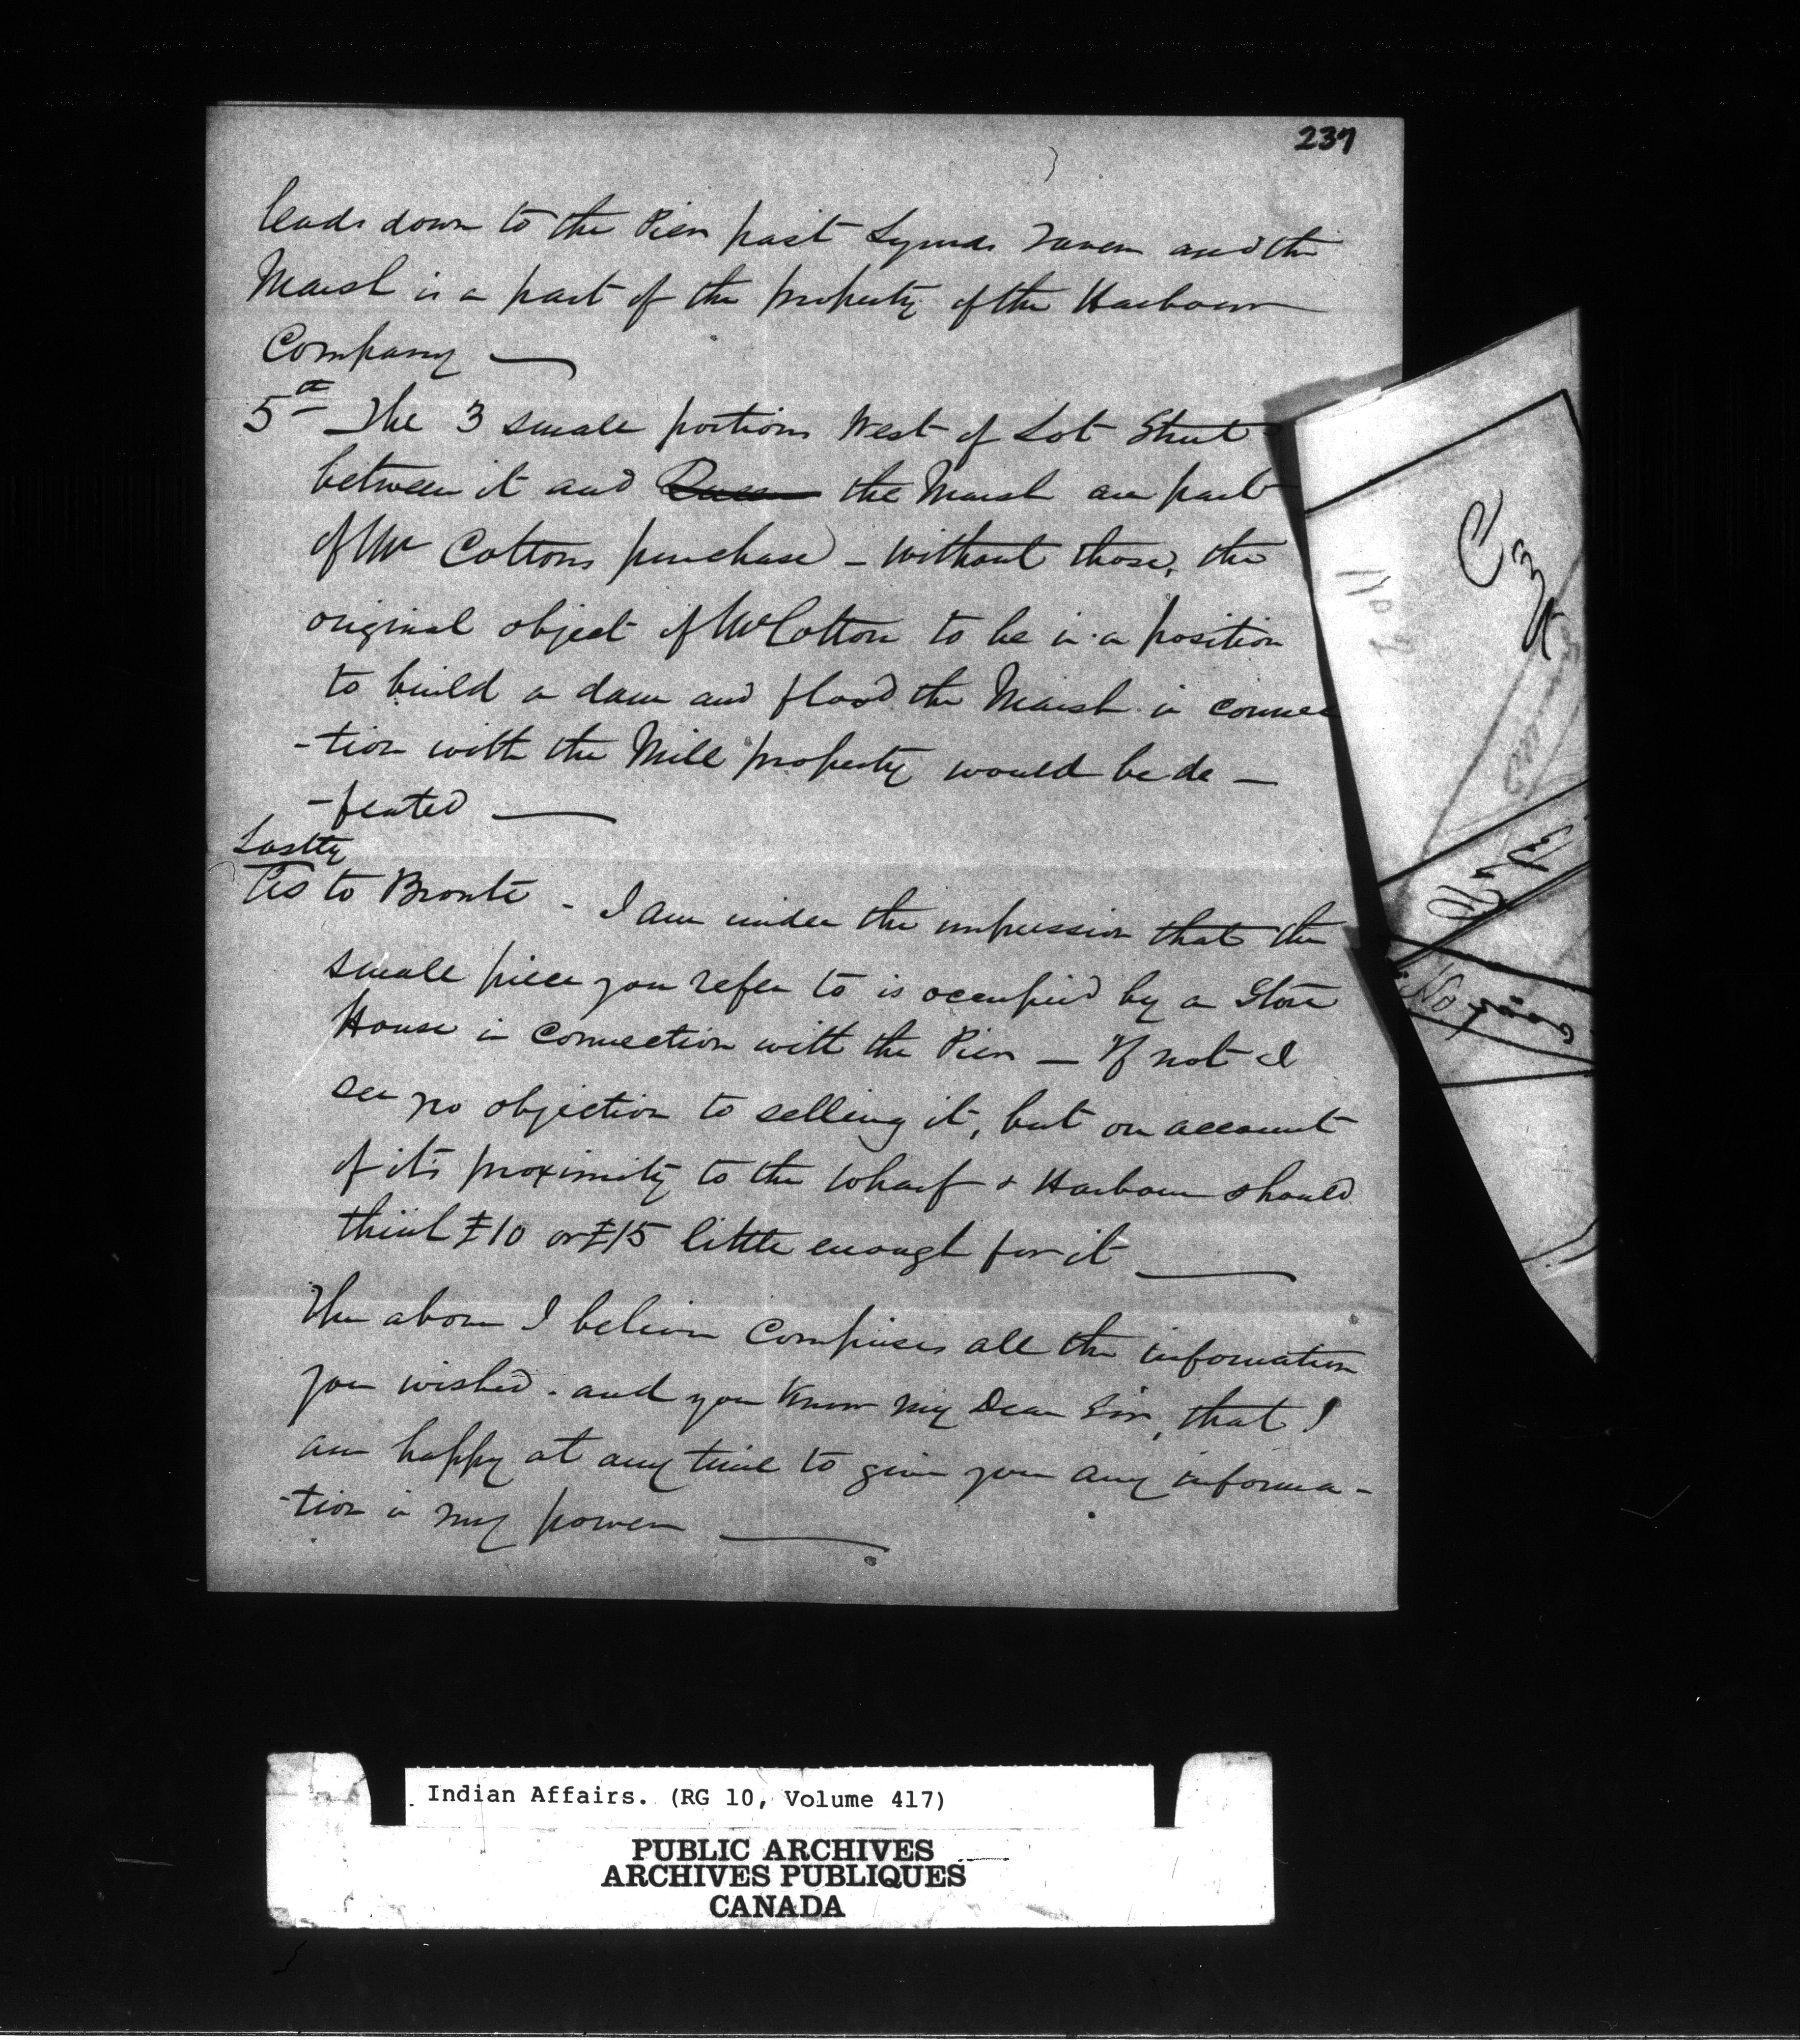 237
leads down to the Pier past Lynds Tavern and the
Marsh is a part of the property of the Harbour
Company —
5th The 3 small portions West of Lot Street
between it and Queen the Marsh are part
of Mr Cottons purchase – without those, the
original object of Mr Cotton to be in a position
to build a dam and flood the Marsh in connec
-tion with the Mill property would be de –
-feated —
Lastly
As to Bronte - I am under the impression that the
small piece you refer to is occupied by a Store
House in connection with the Pier — If not I
see no objection to selling it, but on account
of it's proximity to the wharf & Harbour should
think £10 or £15 little enough for it —
The above I believe comprises all the information
you wished - and you know my Dear Sir, that I
am happy at any time to give you any informa-
-tion in my power —
Indian Affairs. (RG 10, Volume 417)
PUBLIC ARCHIVES
ARCHIVES PUBLIQUES
CANADA